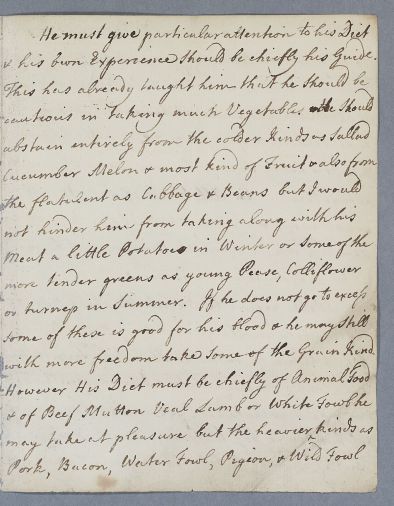 He must give particular attention to his Diet
& his own Experience should be chiefly his Guide.
This has already taught him that he should be
cautious in taking much Vegetables he should
abstain entirely from the colder kinds as Sallad
Cucumber Melon & most kind of Fruit & also from
the flatulent as Cabbage & Beans but I would
not hinder him from taking along with his
Meat a little Potatoe in Winter or some of the
more tender greens as young Pease, Colliflower
or turneps in Summer. If he does not go to excess
some of these is good for his blood & he may still
with more freedom take some of the Grain kind.
However His Diet must be chiefly of Animal Food
& of Beef Mutton Veal Lamb or White Fowl he
may take at pleasure but the heavier kinds as
Pork, Bacon, Water Fowl, Pigeon, & Wild Fowl